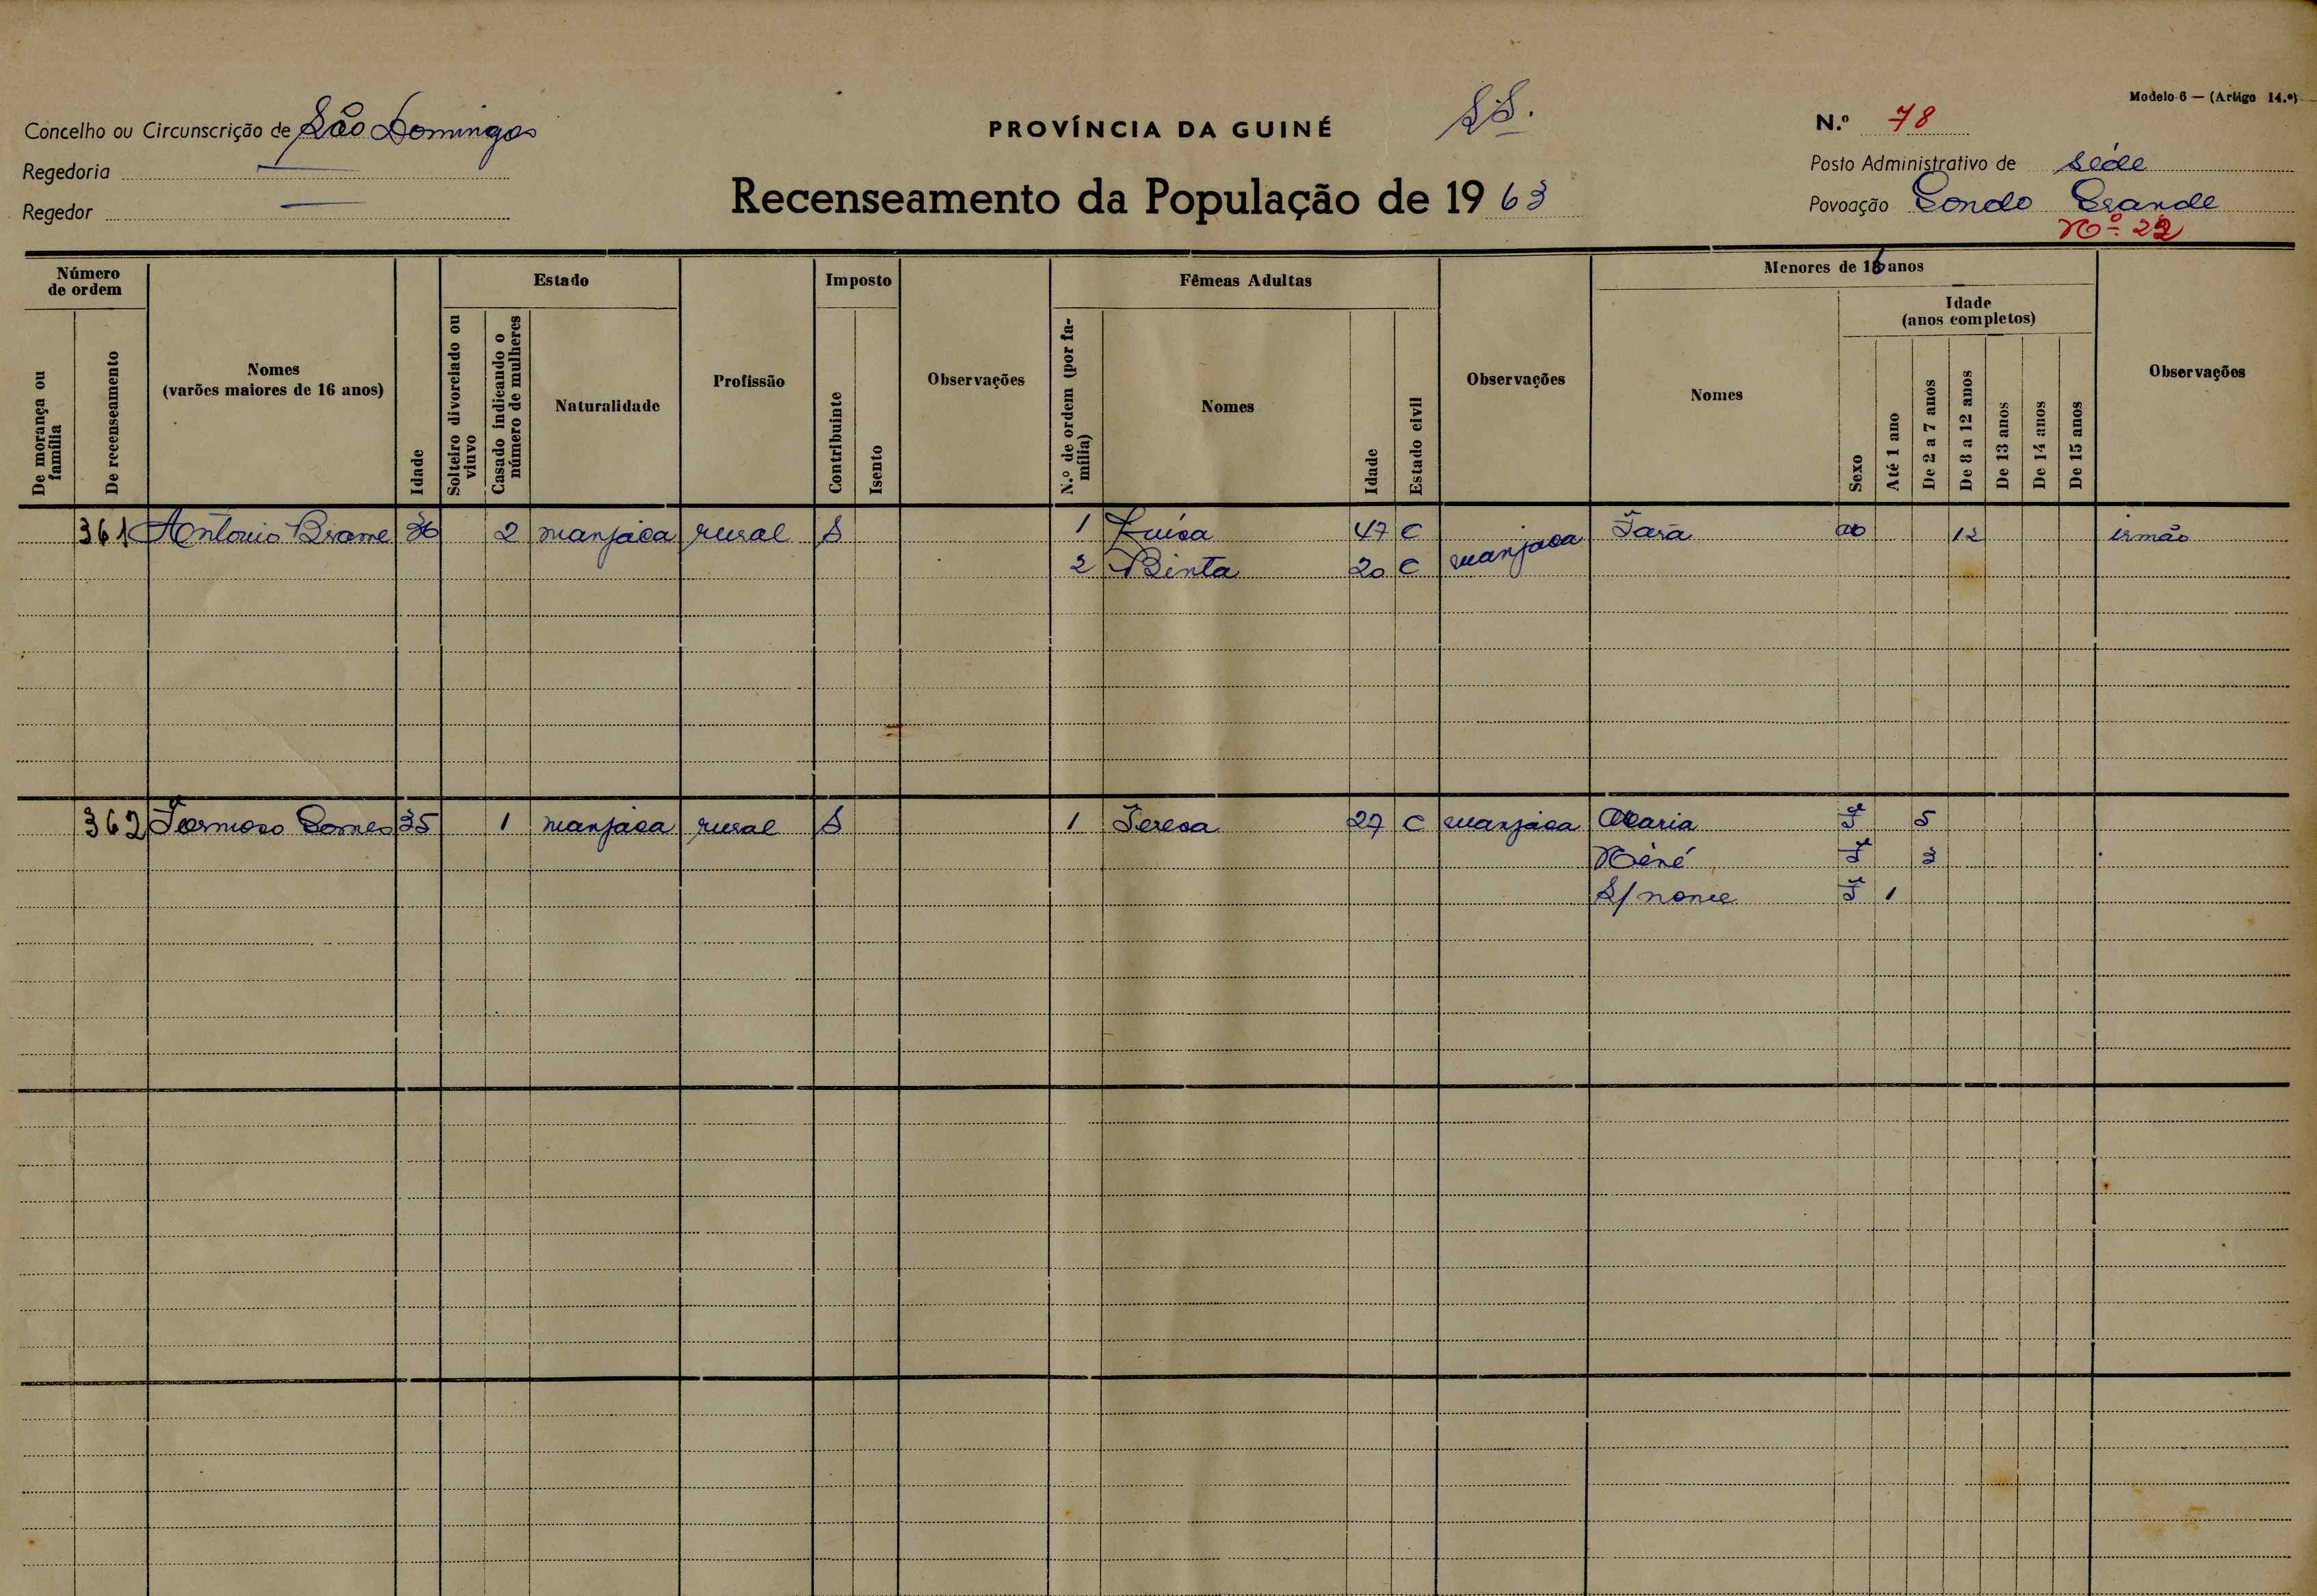 Modelo 6 — (Artigo 14.º)
Concelho ou Circunscrição de São Domingos
PROVÍNCIA DA GUINÉ
N.º 78
Regedoria —
Posto Administrativo de Séde
Regedor —
Recenseamento da População de 1963
Povoação Grande
Nº 22
Número de ordem
Estado
Imposto
Fêmeas Adultas
Menores de 16 anos
Idade
(anos completos)
De morança ou família
De recenseamento
Nomes
(varões maiores de 16 anos)
Idade
Solteiro divorciado ou viuvo
Casado indicando o número de mulheres
Naturalidade
Profissão
Contribuinte
Isento
Observações
N.º de ordem (por família)
Nomes
Idade
Estado civil
Observações
Nomes
Sexo
Até 1 ano
De 2 a 7 anos
De 8 a 12 anos
De 13 anos
De 14 anos
De 15 anos
Observações
361 António Brame 2 manjaca rural S 1 Luisa 47 C manjaca 12 irmão
2 Binta 20 C
362 Gomes 35 1 manjaca rural S 1 Teresa 27 C manjaca Maria F 5
Néné F 3
S/ nome F 1